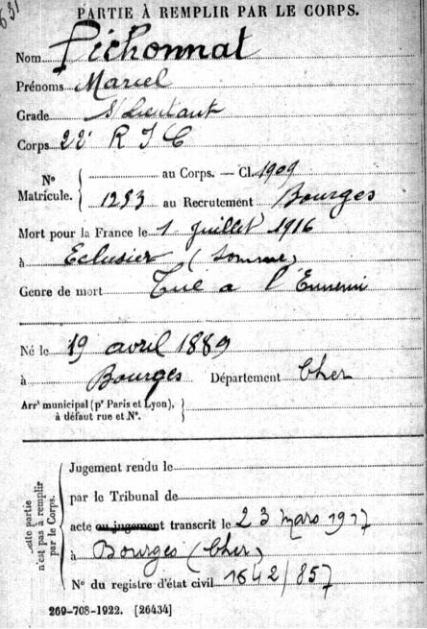 631
PARTIE À REMPLIR PAR LE CORPS.
Nom Pichonnat
Prénoms Marcel
Grade S/ Lieutant
Corps 22e R I C
No Matricule. { au Corps. — Cl. 1909
1283 au Recrutement Bourges
Mort pour la France le 1 juillet 1916
à Eclusier (Somme)
Genre de mort Tué a l'Ennemi
Né le 19 avril 1889
à Bourges Département Cher
Arrt municipal (pr Paris et Lyon), à défaut rue et No. }
Cette partie n'est pas à remplir par le Corps.
Jugement rendu le
par le Tribunal de
acte ou jugement transcrit le 23 mars 1917
à Bourges (Cher)
No du registre d'état civil 1642/857
269-708-1922. [26434]